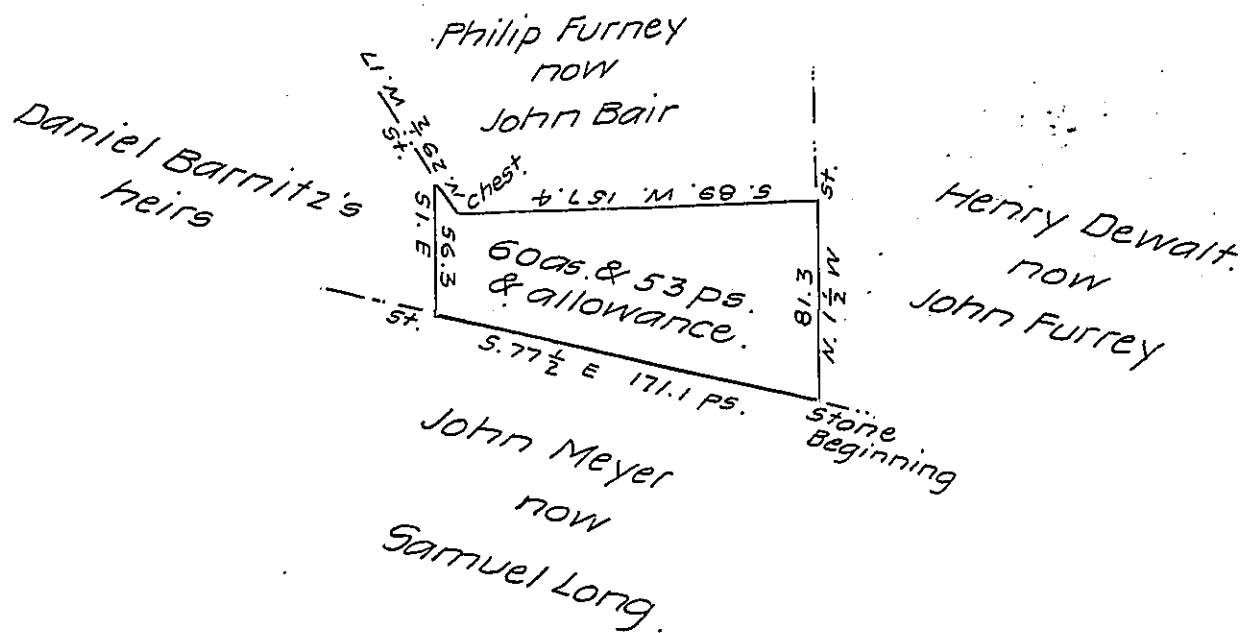 Philip Furney
now
John Bair
Daniel Barnitz's
heirs
N. 29 1/2 W. 17
St.
chest.
S. 89. W. 157.4
St.
Henry Dewalt.
now
John Furrey
S1. E
56.3
60as. & 53 ps.
& allowance.
81.3
N. 1 1/2 W
St.
S. 77 1/2 E 171.1 ps.
Stone
Beginning
John Meyer
now
Samuel Long.